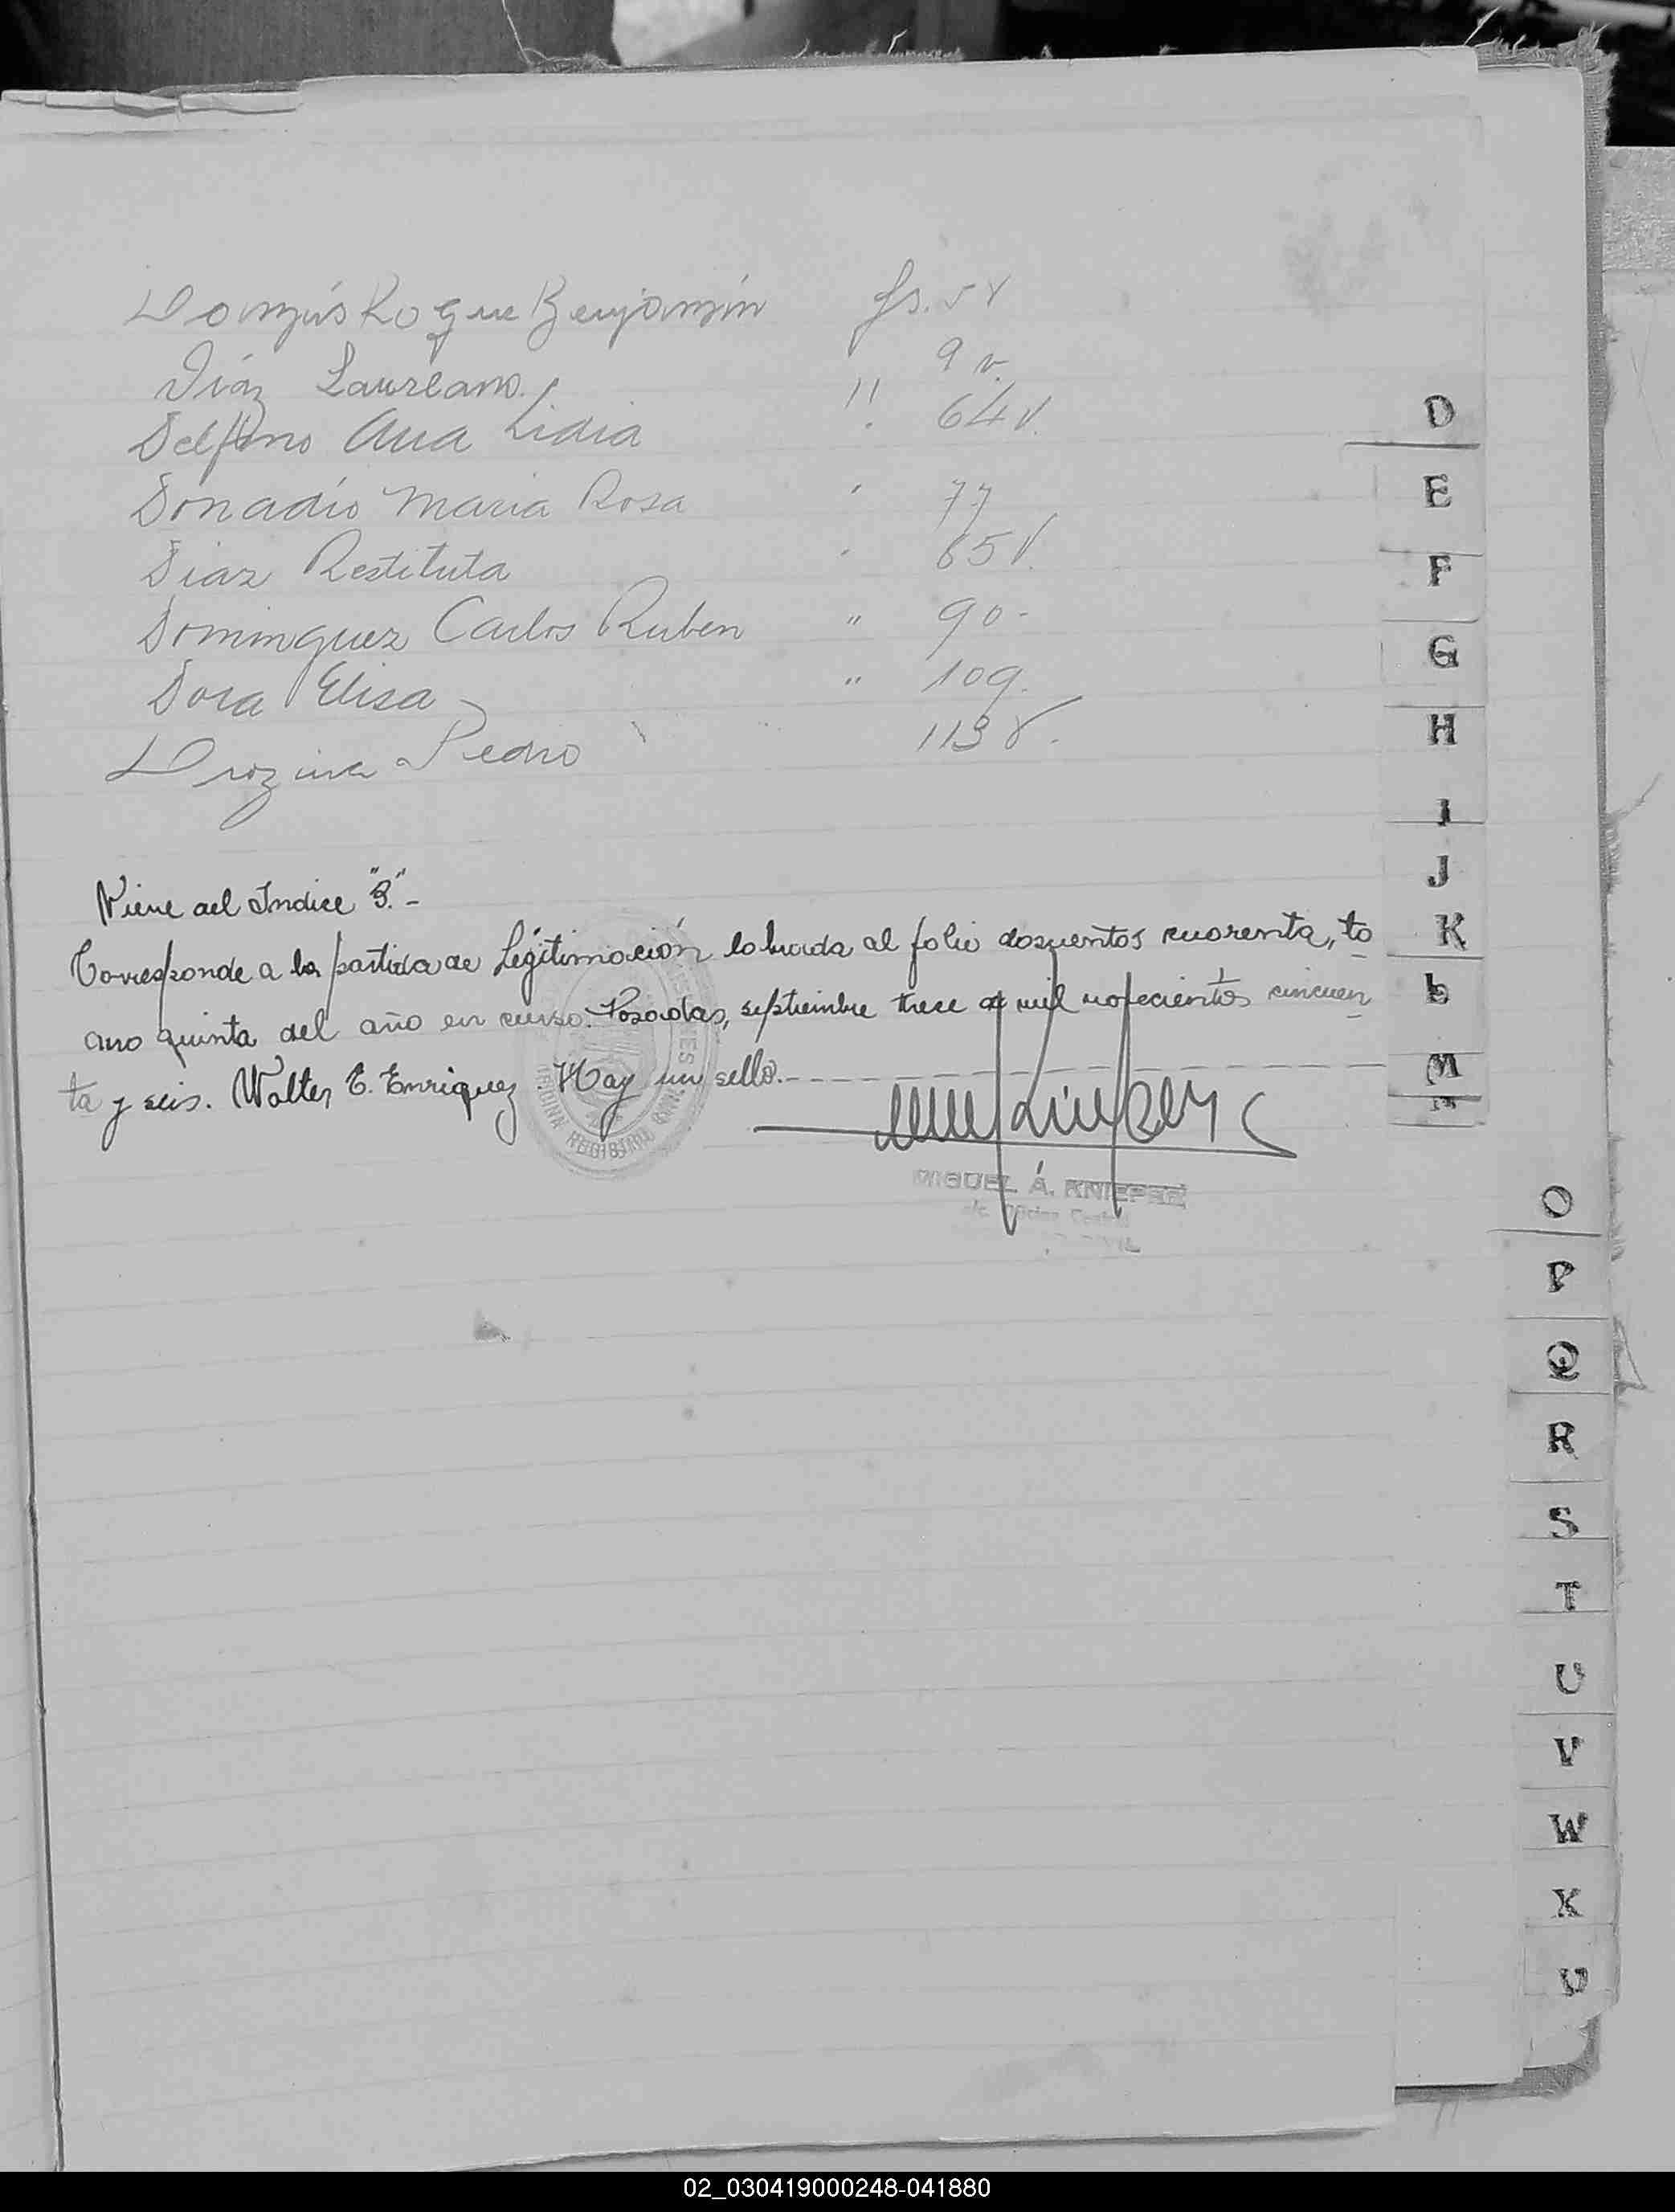 Roque Benjamín fs. 5 v
Díaz Laureano. " 9 v.
Delfino Ana Lidia . 64 V.
Donadío Maria Rosa ' 77
Diaz Restituta ' 65 V.
Dominguez Carlos Ruben " 90-
Dora Elisa " 109.
Pedro 113 v.
Viene del Indice "B".-
Corresponde a la partida de Legitimación labrada al folio doscientos cuarenta, to
mo quinto del año en curso. Posadas, septiembre trece de mil novecientos cincuen
ta y seis. Walter E. Enriquez. Hay un sello.-
MIGUEL Á.
D
E
F
G
H
I
J
K
L
M
O
P
Q
R
S
T
U
V
W
X
02_030419000248-041880